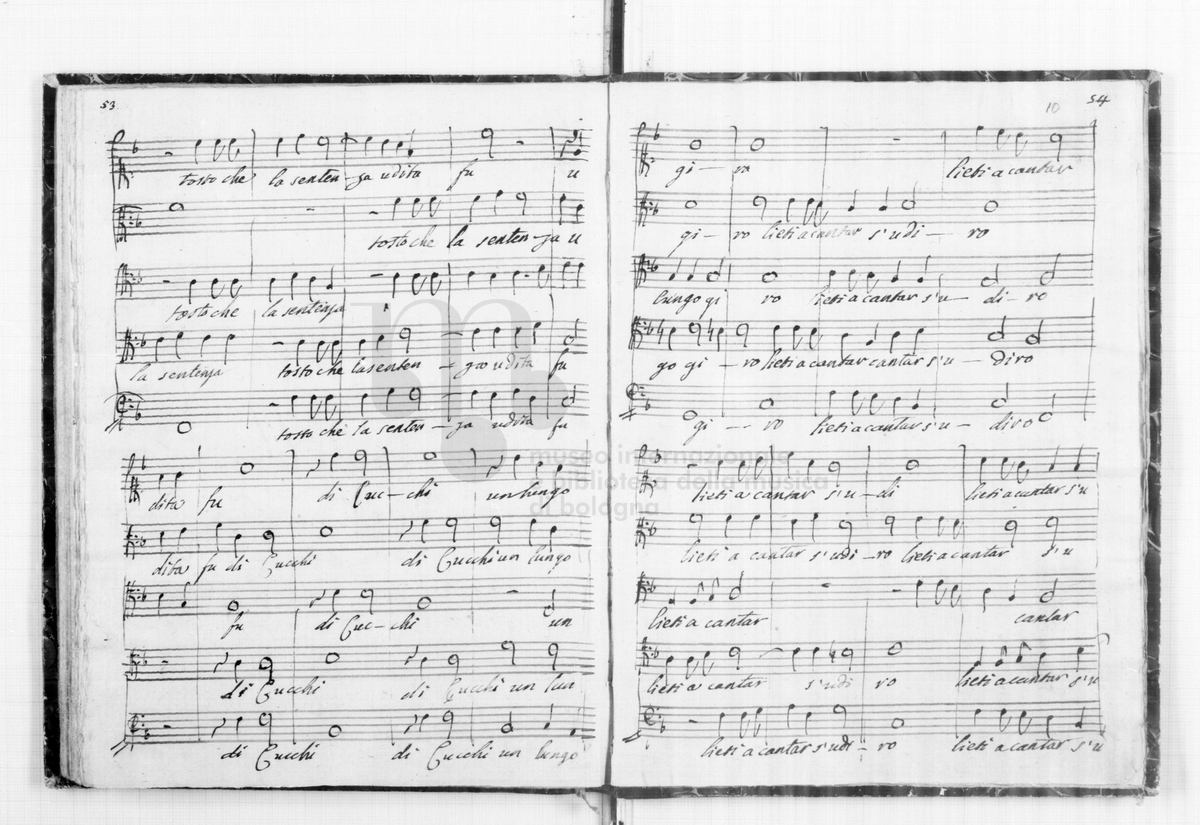 53
tosto che la senten - za udita fu u
tosto che la senten - za u
tosto che la sentenza
la sentenza tosto che la senten - za udita fu
tosto che la senten - za udita fu
dita fu di Cuc - chi un lungo
dita fu di Cucchi di Cucchi un lungo
fu di Cuc - chi un
di Cucchi di Cucchi un lun
di Cucchi di Cucchi un lungo
10 54
gi - ro lieti a cantar
gi - ro lieti a cantar s'udi - ro
lungo gi ro lieti a cantar s'u - di - ro
go gi - ro lieti a cantar cantar s'u - diro
gi - ro lieti a cantar s'u - diro
lieti a cantar s'u - di lieti a cantar s'u
lieti a cantar s'udi - ro lieti a cantar s'u
lieti a cantar cantar
lieti a cantar s'udi ro lieti a cantar s'u
lieti a cantar s'udi - ro lieti a cantar s'u
museo internazionale
e biblioteca della musica
di bologna